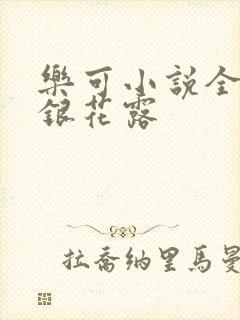 樂可小説全
銀花露
拉喬納里馬曼